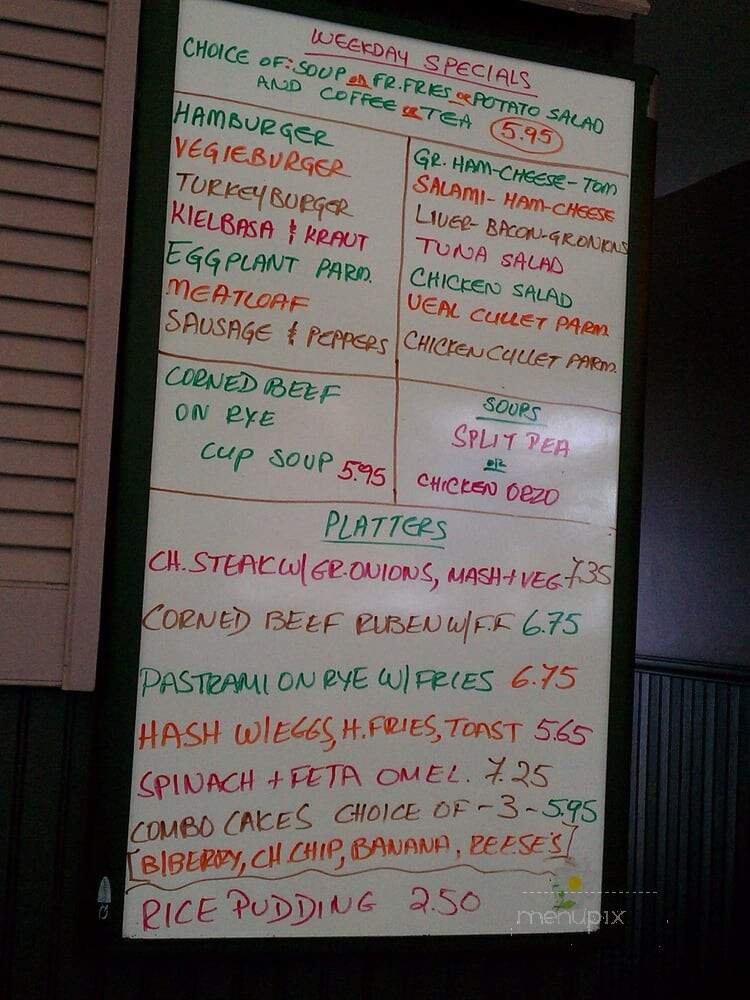 WEEKDAY SPECIALS
CHOICE OF: SOUP OR FR. FRIES OR POTATO SALAD
AND COFFEE OR TEA 5.95
HAMBURGER
VEGIEBURGER
TURKEYBURGER
KIELBASA & KRAUT
EGGPLANT PARM.
MEATLOAF
SAUSAGE & PEPPERS
GR. HAM-CHEESE-TOM
SALAMI-HAM-CHEESE
LIVER-BACON-GR.ONIONS
TUNA SALAD
CHICKEN SALAD
VEAL CULLET PARM.
CHICKEN CULLET PARM.
CORNED BEEF
ON RYE
CUP SOUP 5.95
SOUPS
SPLIT PEA
OR
CHICKEN ORZO
PLATTERS
CH. STEAK W/ GR.ONIONS, MASH + VEG. 7.35
CORNED BEEF RUBEN W/ F.F 6.75
PASTRAMI ON RYE W/ FRIES 6.75
HASH W/ EGGS, H. FRIES, TOAST 5.65
SPINACH + FETA OMEL. 7.25
COMBO CAKES CHOICE OF -3- 5.95
[B/BERRY, CH.CHIP, BANANA, REESE'S]
RICE PUDDING 2.50
menupix